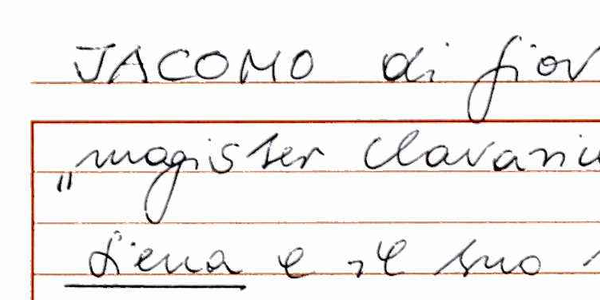 JACOMO di Giov
„magister clavariu
Siena e il suo